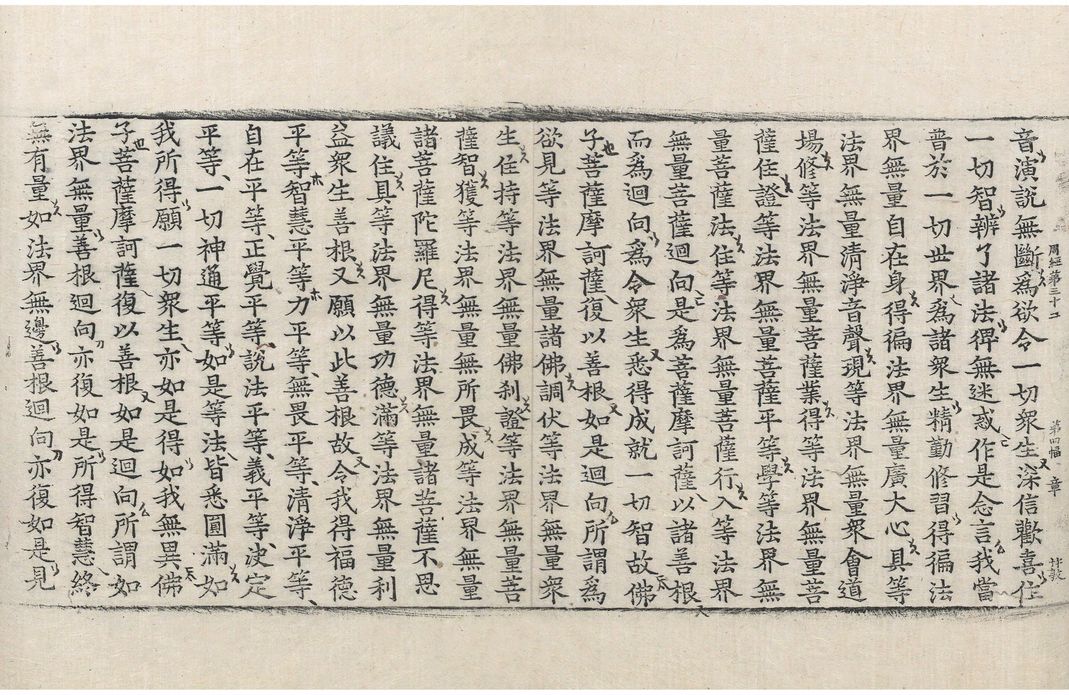 音演說無斷爲欲令一切衆生深信歡喜住
周經第三十二 第四幅 章
一切智辨了諸法得無迷惑作是念言我當
普於一切世界爲諸衆生精勤修習得徧法
界無量自在身得徧法界無量廣大心具等
法界無量清淨音聲現等法界無量衆會道
場修等法界無量菩薩業得等法界無量菩
薩住證等法界無量菩薩平等學等法界無
量菩薩法住等法界無量菩薩行入等法界
無量菩薩迴向是爲菩薩摩訶薩以諸善根
而爲迴向爲令衆生悉得成就一切智故佛
子菩薩摩訶薩復以善根如是迴向所謂爲
欲見等法界無量諸佛調伏等法界無量衆
生住持等法界無量佛刹證等法界無量菩
薩智獲等法界無量無所畏成等法界無量
諸菩薩陀羅尼得等法界無量諸菩薩不思
議住具等法界無量功德滿等法界無量利
益衆生善根又願以此善根故令我得福德
平等智慧平等力平等無畏平等、清淨平等、
自在平等、正覺平等、說法平等、義平等、決定
平等、一切神通平等如是等法皆悉圓滿如
我所得願一切衆生亦如是得如我無異佛
子菩薩摩訶薩復以善根如是迴向所謂如
法界無量善根迴向亦復如是所得智慧終
無有量如法界無邊善根迴向亦復如是見